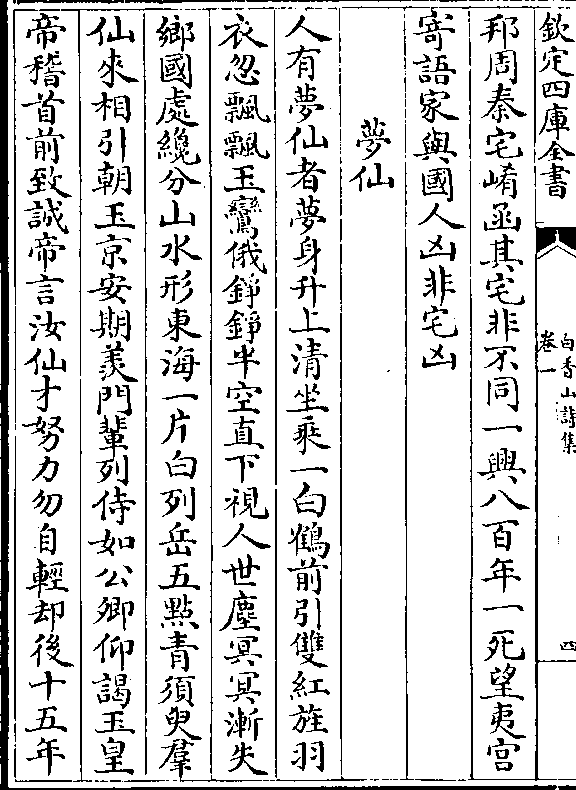 欽定四庫全書
白香山詩集
卷一
四
邦周秦宅崤函其宅非不同一興八百年一死望夷宫
寄語家與國人凶非宅凶
夢仙
人有夢仙者夢身升上清坐乘一白鶴前引雙紅旌羽
衣忽飄飄玉鸞俄錚錚半空直下視人世塵冥冥漸失
鄉國處纔分山水形東海一片白列岳五點青須臾羣
仙來相引朝玉京安期羨門軰列侍如公卿仰謁玉皇
帝稽首前致誠帝言汝仙才努力勿自輕却後十五年